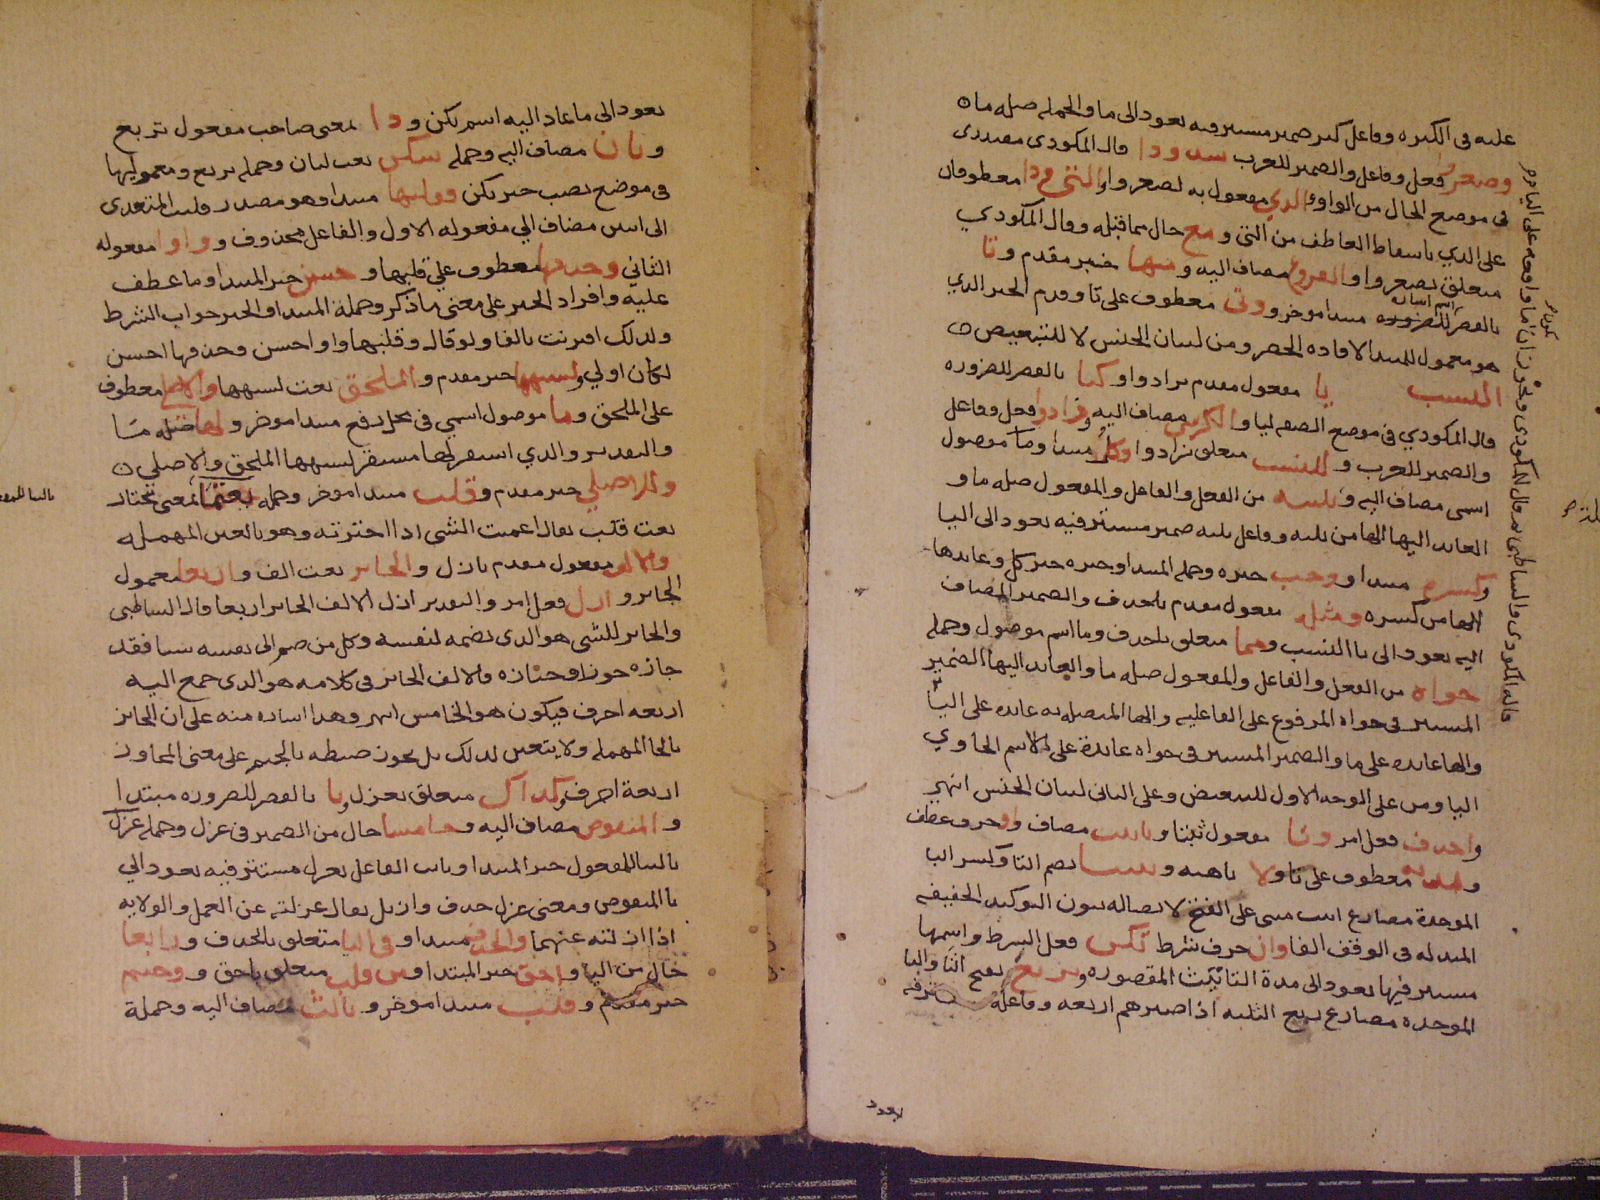 عليه فى الكثره وفاعل كثر ضمير مستتر فيه يعود الى ما والجمله صله ما
وصغروا فعل وفاعل والضمير للعرب شذوذا قال المكودى مصدر
فى موضع الحال من الواو و الذي مفعول به لصغروا و التي و ذا معطوفان
على الذي باسقاط العاطف من التي و مع حال مما قبله وقال المكودي
متعلق بصغروا و الفروع مضاف اليه و منها خبر مقدم و تا
بالقصر للضروره مبتدا موخر و وتى معطوف على تا وقدم الخبر الذي
هو معمول للمبتدا لافاده الحصر ومن لبيان الجنس لا للتبعيض
النسب يا مفعول مقدم بزادوا و كيا بالقصر للضروره
قال المكودي فى موضع الصفه ليا و الكرسى مضاف اليه و زادوا فعل وفاعل
والضمير للعرب و للنسب متعلق بزادوا و كل مبتدا وما موصول
اسمى مضاف اليه و تليه من الفعل والفاعل والمفعول صله ما و
العايد اليها الها من تليه وفاعل تليه ضمير مستتر فيه يعود الى اليا
و كسره مبتدا و وجب خبره وجمله المبتدا وخبره خبر كل وعايدها
الها من كسره و مثله مفعول مقدم باحذف والضمير المضاف
اليه يعود الى يا النسب و مما متعلق باحذف وما اسم موصول وجمله
حواه من الفعل والفاعل والمفعول صله ما والعايد اليها الضمير
المستتر فى حواه المرفوع على الفاعليه والها المتصله به عايده على اليا
والها عايده على ما والضمير المستتر فى حواه عايدة على الاسم الحاوي
اليا ومن على الوجه الاول للتبعيض وعلى الثانى لبيان الجنس انتهى
و احذف فعل امر و تا مفعول تثبتا و تانيث مضاف و او حرف عطف
و مدته معطوف على تا و لا ناهيه و تثبتا بضم التا وكسر البا
الموحدة مضارع اثبت مبنى على الفتح لاتصاله بنون التوكيد الخفيفه
المبدله فى الوقف الفا و ان حرف شرط تكن فعل الشرط واسمها
مستتر فيها يعود الى مدة التانيث المقصوره و تربع بفتح التا والبا
الموحده مضارع ربع الثلثه اذا صيرهم اربعه وفاعله مستتر فيه
يعود
يعود الى ما عاد اليه اسم تكن و ذا بمعنى صاحب مفعول تربع
و ثان مضاف اليه وجمله سكن نعت لثان وجمله تربع ومعموليها
فى موضع نصب خبر تكن و وقلبها مبتدا وهو مصدر قلب المتعدى
الى اثنين مضاف الي مفعوله الاول والفاعل محذوف و واوا مفعوله
الثاني وحذفها معطوف علي قلبها و حسن خبر المبتدا وما عطف
عليه وافراد الخبر على معنى ما ذكر وجملة المبتدا والخبر جواب الشرط
ولذلك اقترنت بالفا ولو قال وقلبها واوا حسن وحذفها احسن
لكان اولي و لشبهها خبر مقدم و الملحق نعت لشبهها والاصلى معطوف
على الملحق و ما موصول اسمي فى محل رفع مبتدا موخر و لها صله ما
والتقدير والذي استقر لها مستقر لشبهها الملحق والاصلى
وللاصلي خبر مقدم و قلب مبتدا موخر وجمله يعتمى بمعنى يختار
نعت قلب يقال اعتميت الشى اذا اخترته وهو بالعين المهمله
والالف مفعول مقدم بازل و الجائز نعت الف و اربعا معمول
الجائز و ازل فعل امر والتقدير ازل الالف الجائز اربعا قال الشاطبى
والحائز للشى هو الذى يضمه لنفسه وكل من ضم الى نفسه شيا فقد
حازه حوزا وحيازه والالف الحائز فى كلامه هو الذى جمع اليه
اربعه احرف فيكون هو الخامس انتهى وهذا اشاره منه على ان الحائز
بالحا المهمله ولا يتعين لذلك بل يجوز ضبطه بالجيم على معنى المجاوز
اربعة احرف و كذاك متعلق بعزل و يا بالقصر للضروره مبتدا
و المنقوص مضاف اليه و خامسا حال من الضمير فى عزل وجمله عزل
بالبنا للمفعول خبر المبتدا ونائب الفاعل بعزل مستتر فيه يعود الي
يا المنقوص ومعنى عزل حذف وازيل يقال عزلته عن العمل والولايه
اذا ازلته عنهما والحذف مبتدا و فى اليا متعلق بالحذف و رابعا
حال من اليا و احق خبر المبتدا و من قلب متعلق باحق و وحتم
خبر مقدم و قلب مبتدا موخر و ثالث مضاف اليه وجملة